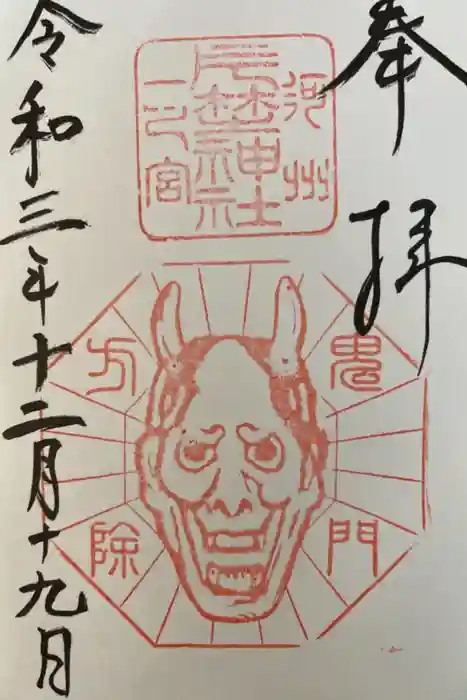 奉拝
河州
片埜神社
一之宮
鬼門
方除
令和三年十二月十九日